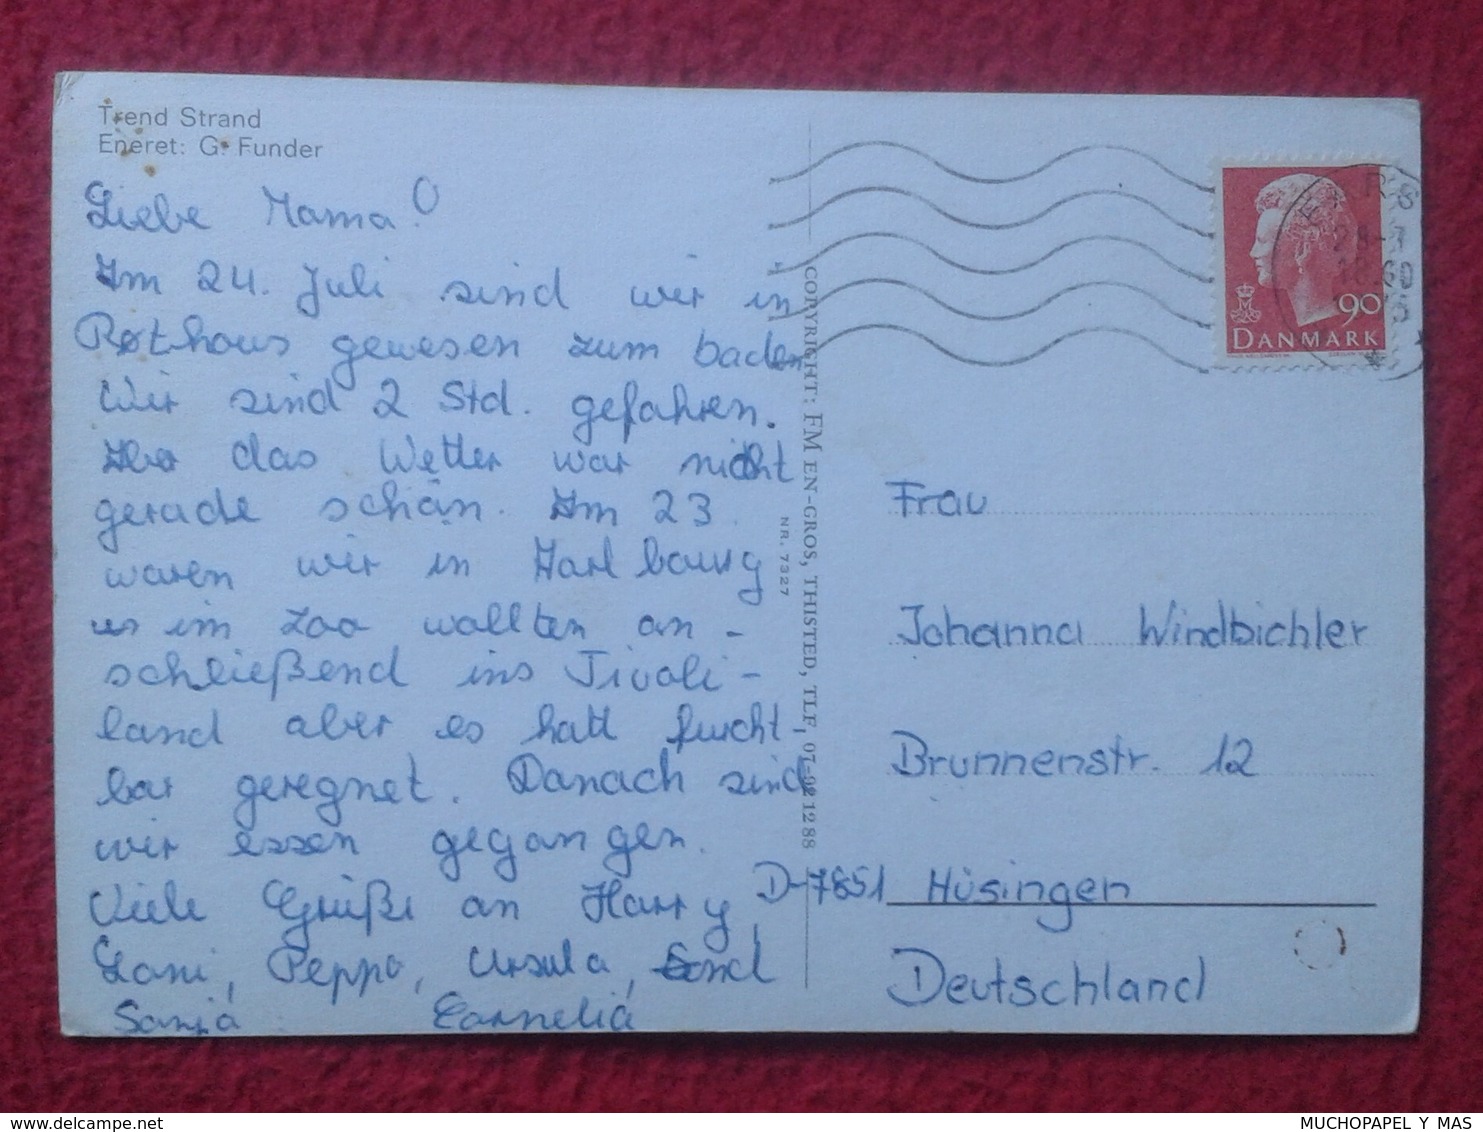 Trend Strand
Eneret: G. Funder
Liebe Mama!
Im 24. Juli sind wir in
Rothaus gewesen zum baden
Wir sind 2 Std. gefahren.
das Wetter war nicht
gerade schön. Im 23.
waren wir in
im Zoo wollten an-
schließend ins Tivoli-
land aber es hatt furcht-
bar geregnet. Danach sind
wir essen gegangen.
Viele Grüße an Harry
Loni, Peppo, Ursula, und
Sanja Cornelia
COPYRIGHT: FM EN-GROS, THISTED, TLF. 07-921288
NR. 7327
90
DANMARK
Frau
Johanna Windbichler
Brunnenstr. 12
D-7851 Hüsingen
Deutschland
delcampe.net
MUCHOPAPEL Y MAS